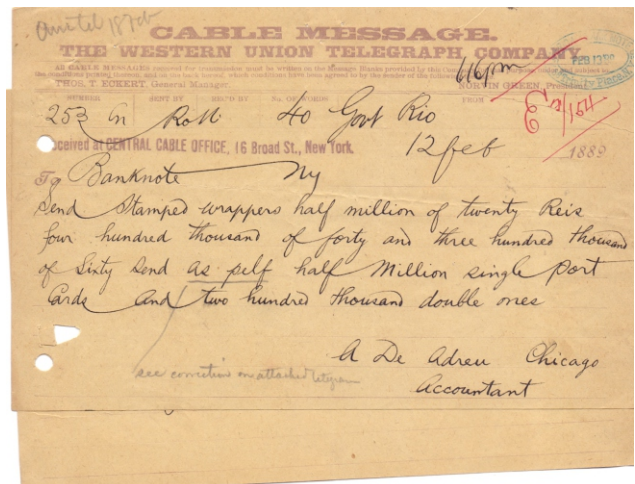 CABLE MESSAGE.
THE WESTERN UNION TELEGRAPH COMPANY.
THOS. T. ECKERT, General Manager. NORVIN GREEN, President.
NUMBER SENT BY REC'D BY No. OF WORDS FROM
253 Gn 40 Govt Rio
Received at CENTRAL CABLE OFFICE, 16 Broad St., New York. 12 feb 1889
To Banknote Ny
Send Stamped wrappers half million of twenty Reis
four hundred thousand of forty and three hundred thousand
of Sixty Send as pelf half Million single Port
Cards and two hundred thousand double ones
A De Adreu Chicago
Accountant
see correction on attached